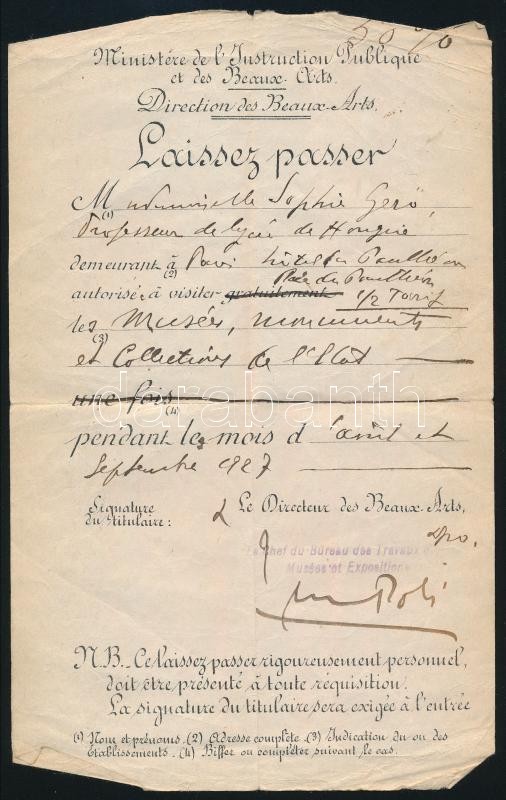 5070
Ministère de l'Instruction Publique
et des Beaux-Arts.
Direction des Beaux-Arts.
Laissez passer
M(1) ademoiselle Sophie Gerö,
Professeur de lycée de Hongrie
demeurant à(2) Paris hôtel du Panthéon
Place du Panthéon
autorisée à visiter gratuitement 1/2 Tarif
les(3) Musées, monuments
et Collections de l'Etat
une fois(4)
pendant les mois d'août et
Septembre 1927
Signature
du titulaire:
Le Directeur des Beaux-Arts,
Le Chef du Bureau des Travaux
Musées et Expositions
N.B. Ce laissez passer rigoureusement personnel,
doit être présenté à toute réquisition.
La signature du titulaire sera exigée à l'entrée
(1) Nom et prénoms. (2) Adresse complète. (3) Indication du ou des
établissements. (4) Biffer ou compléter suivant le cas.
darabanth